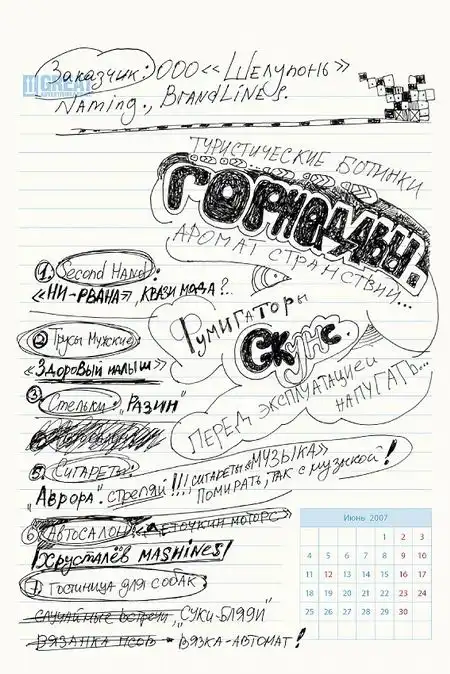 Заказчик: ООО «Шелупонь»
GREAT
Naming., BrandLines.
Туристические ботинки
ГОРНАДЫ.
Аромат странствий...
1. Second Hand:
«Ни-рвана», квази мода?..
Фумигаторы
Скунс.
2 Трусы мужские:
«Здоровый малыш»
Перем эксплуатацией напугать...
3. Стельки: „Разин"
5. Сигареты:
„Аврора". Стреляй!!!
Сигареты «Музыка»
Помирать, так с музыкой!
6 Автосалон: Веточкин моторс»
Хрусталёв mashines
7 Гостиница для собак:
Случайные встречи „Суки-Бляди"
Вязанка псов - Вязка-автомат!
Июнь 2007
1 2 3
4 5 6 7 8 9 10
11 12 13 14 15 16 17
18 19 20 21 22 23 24
25 26 27 28 29 30